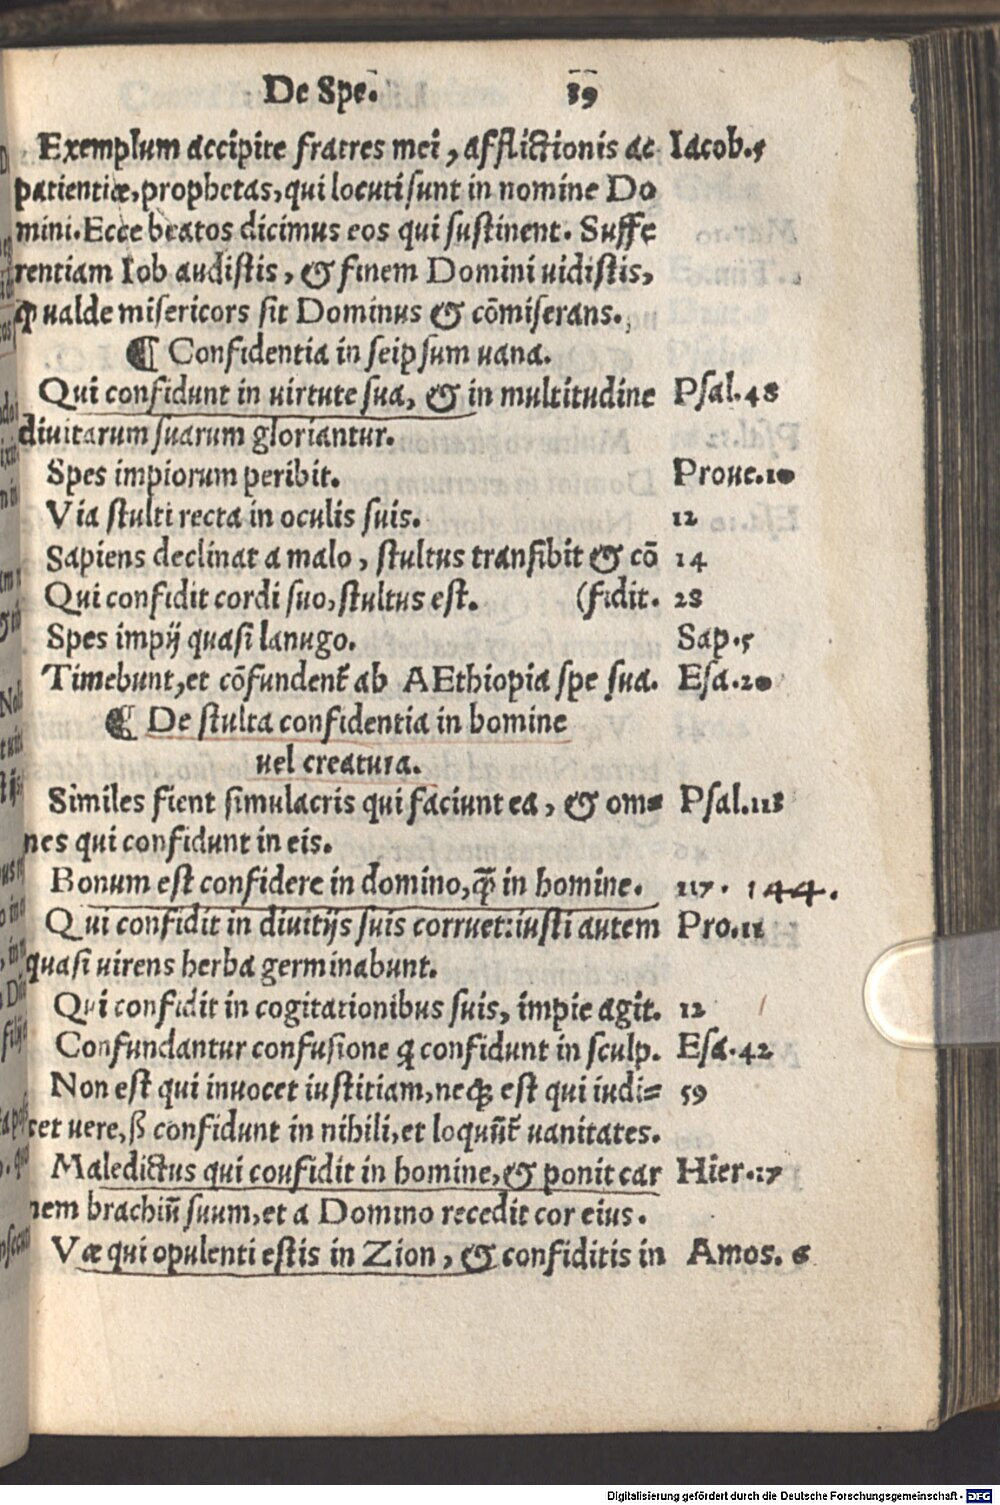 De Spe. 19
Exemplum accipite fratres mei, afflictionis ac Iacob.5
patientiæ, prophetas, qui locuti sunt in nomine Do
mini. Ecce beatos dicimus eos qui sustinent. Suffe
rentiam Iob audistis, & finem Domini uidistis,
ꝙ ualde misericors sit Dominus & cōmiserans.
¶ Confidentia in seipsum uana.
Qui confidunt in uirtute sua, & in multitudine Psal.48
diuitarum suarum gloriantur.
Spes impiorum peribit. Proue.10
Via stulti recta in oculis suis. 12
Sapiens declinat a malo, stultus transibit & cō 14
Qui confidit cordi suo, stultus est. (fidit. 28
Spes impij quasi lanugo. Sap.5
Timebunt, et cōfundent᷒ ab AEthiopia spe sua. Esa.20
¶ De stulta confidentia in homine
uel creatura.
Similes fient simulacris qui faciunt ea, & om= Psal.118
nes qui confidunt in eis.
Bonum est confidere in domino, q̄ in homine. 117. 144.
Qui confidit in diuitijs suis corruet: iusti autem Pro.11
quasi uirens herba germinabunt.
Qui confidit in cogitationibus suis, impie agit. 12
Confundantur confusione q confidunt in sculp. Esa.42
Non est qui inuocet iustitiam, neq; est qui iudi= 59
cet uere, ß confidunt in nihili, et loquūt᷒ uanitates.
Maledictus qui confidit in homine, & ponit car Hier.17
nem brachiū suum, et a Domino recedit cor eius.
Væ qui opulenti estis in Zion, & confiditis in Amos. 6
Digitalisierung gefördert durch die Deutsche Forschungsgemeinschaft - DFG